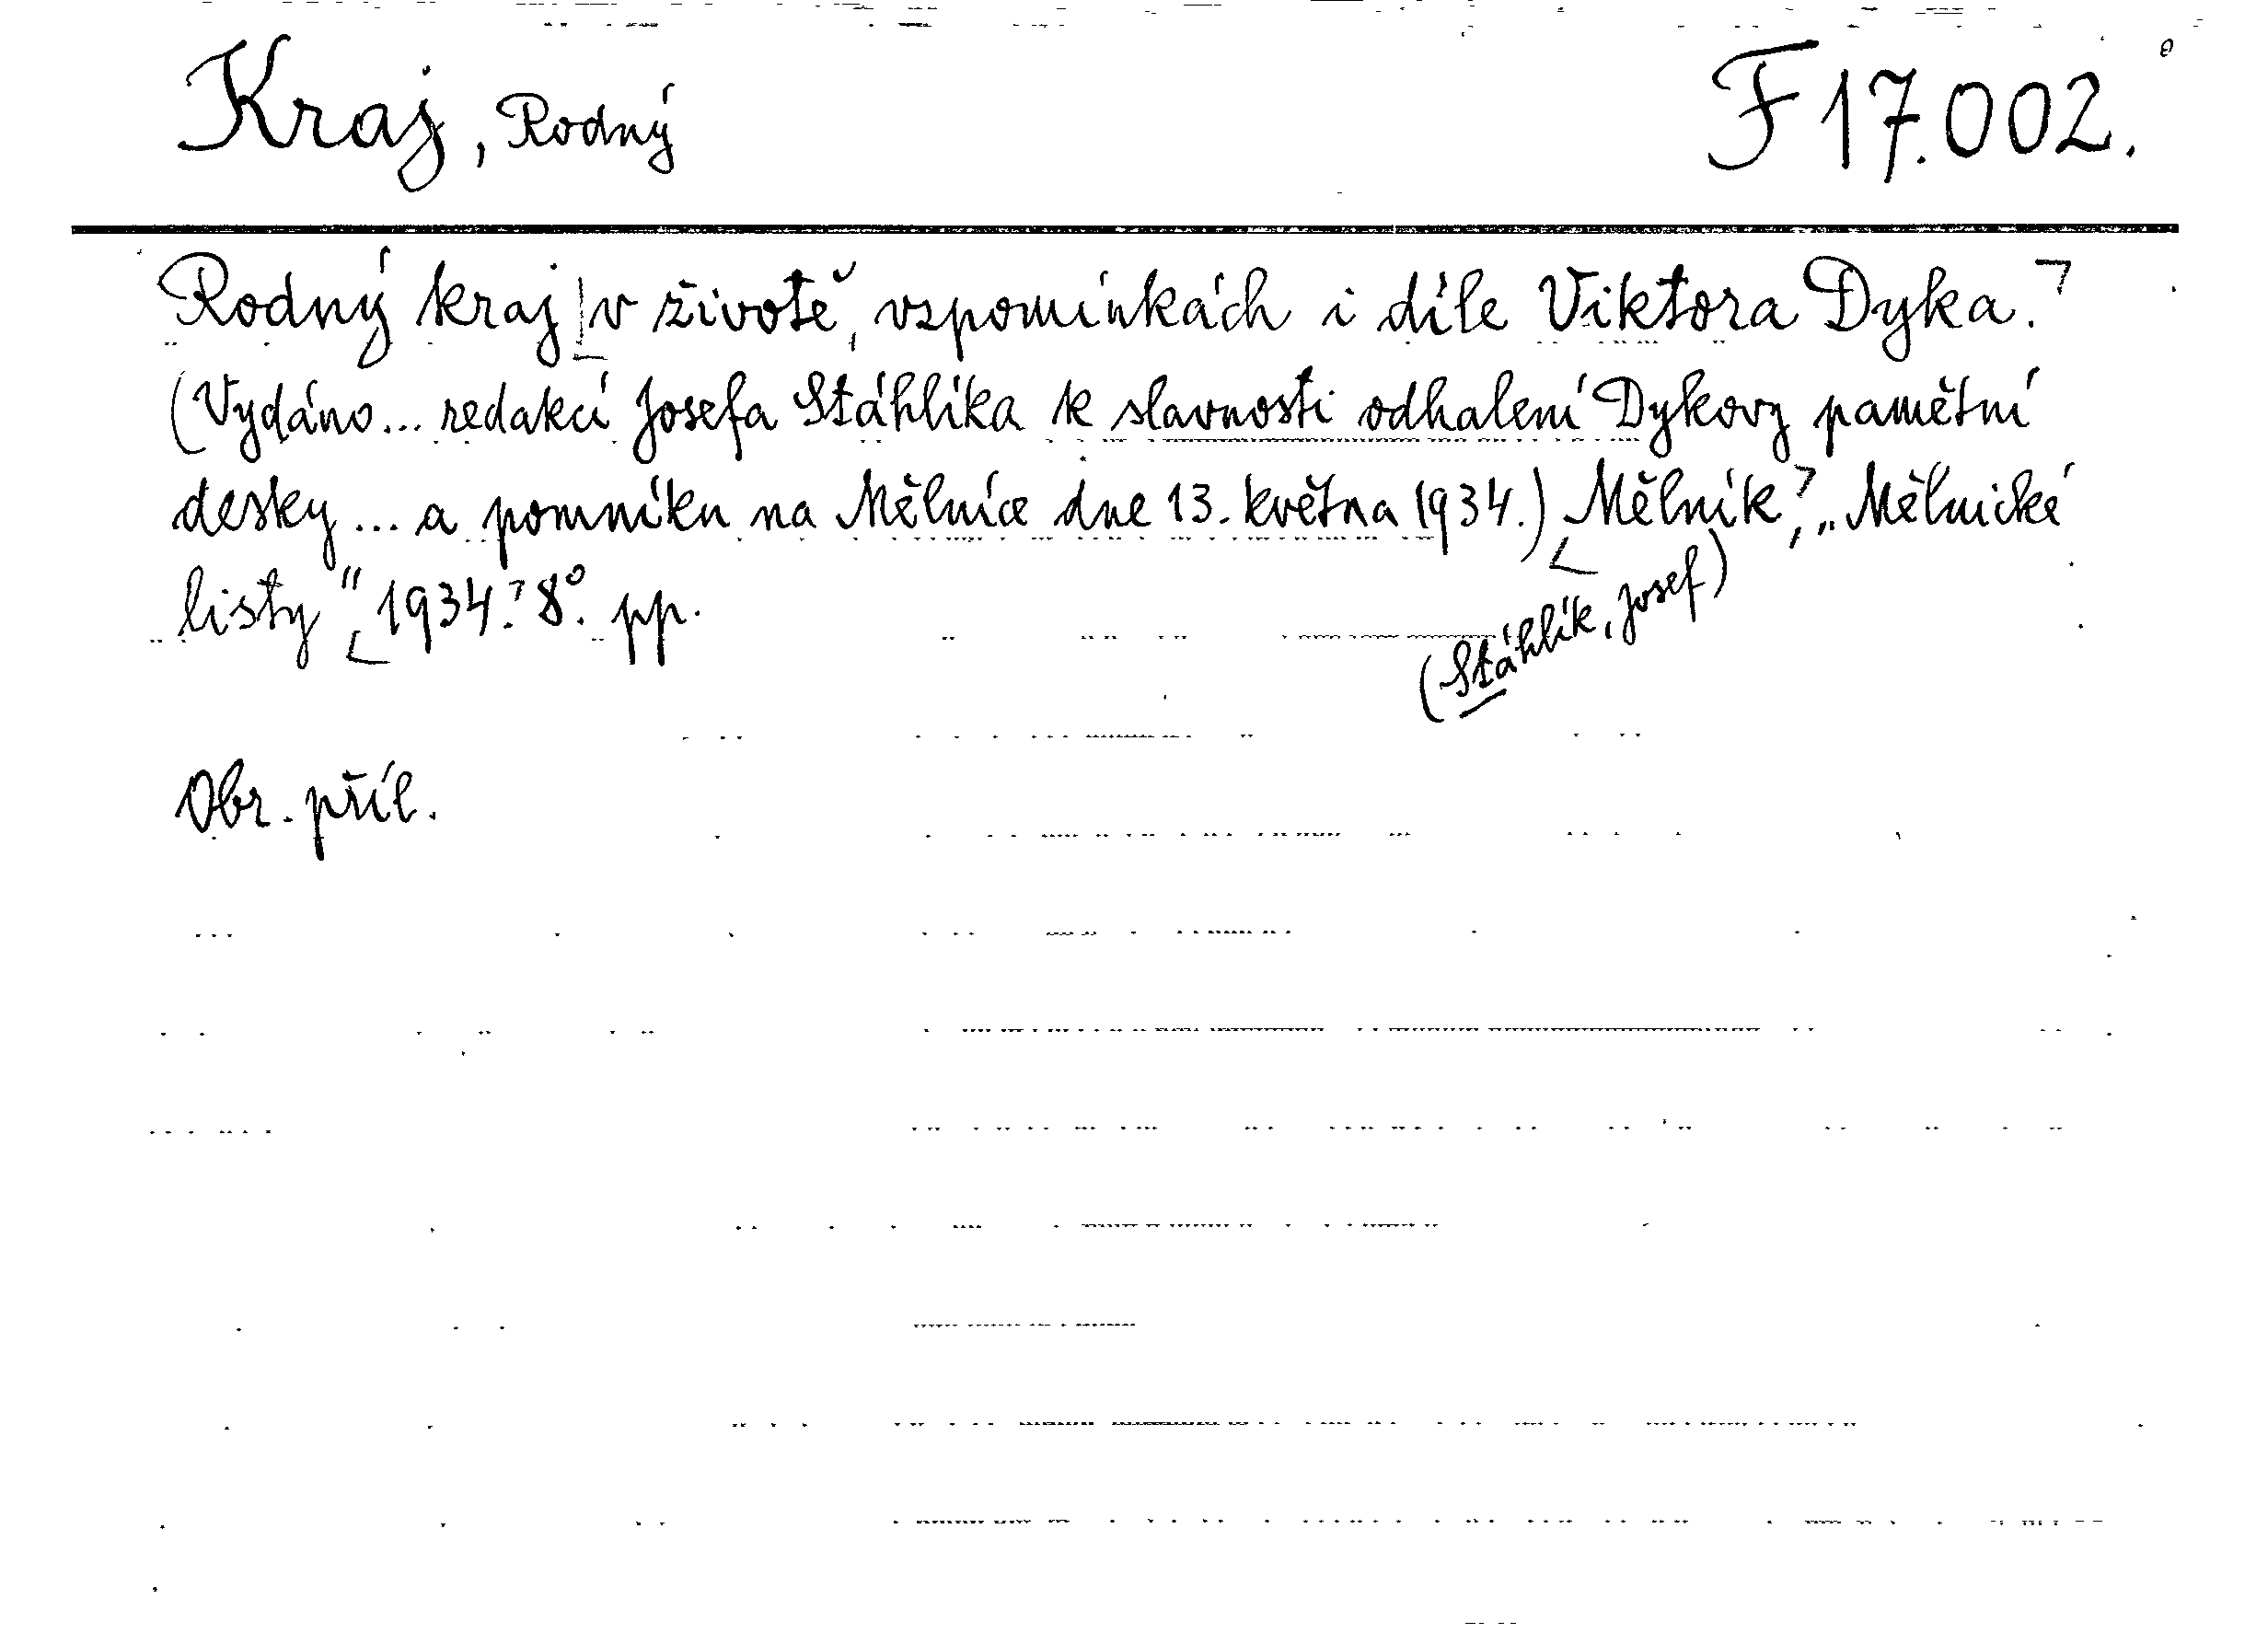 Kraj, Rodný F 17.002.
Rodný kraj v životě, vzpomínkách i díle Viktora Dyka.
(Vydáno... redakcí Josefa Stáhlíka k slavnosti odhalení Dykovy pamětní
desky... a pomníku na Mělníce dne 13. května 1934.) Mělník, „Mělnické
listy" 1934. 8°. pp.
(Stáhlík, Josef)
Obr. příl.